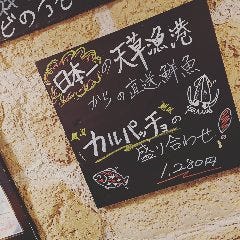 どのって
日本一の天草漁港
からの直送鮮魚
カルパッチョの
盛り合わせ
1,280円